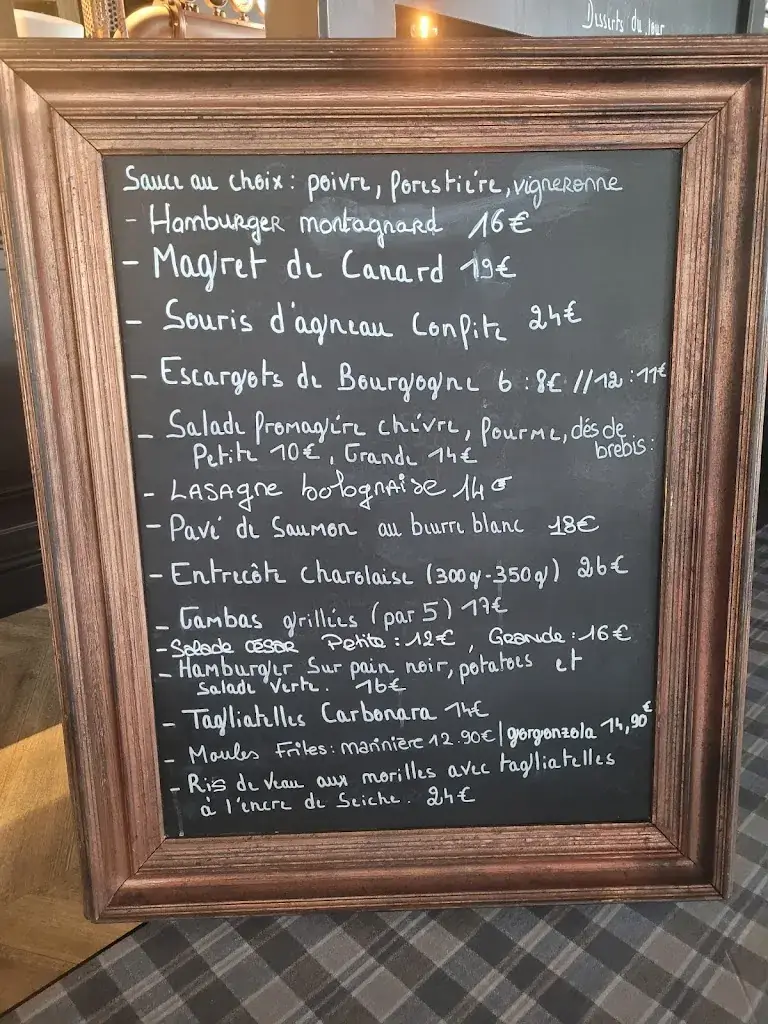 Desserts du jour
Sauce au choix : poivre, forestière, vigneronne
- Hamburger montagnard 16€
- Magret de Canard 19€
- Souris d'agneau Confite 24€
- Escargots de Bourgogne 6 : 8€ // 12 : 11€
- Salade fromagère chèvre, fourme, dés de brebis :
Petite 10€, Grande 14€
- LASAgne bolognaise 14€
- Pavé de Saumon au beurre blanc 18€
- Entrecôte charolaise (300g-350g) 26€
- Gambas grillées (par 5) 17€
- Salade CÉSAR Petite : 12€, Grande : 16€
- Hamburger Sur pain noir, potatoes et
Salade Verte. 16€
- Tagliatelles Carbonara 14€
- Moules Frites : marinière 12.90€ | gorgonzola 14,90€
- Ris de Veau aux morilles avec tagliatelles
à l'encre de Seiche. 24€